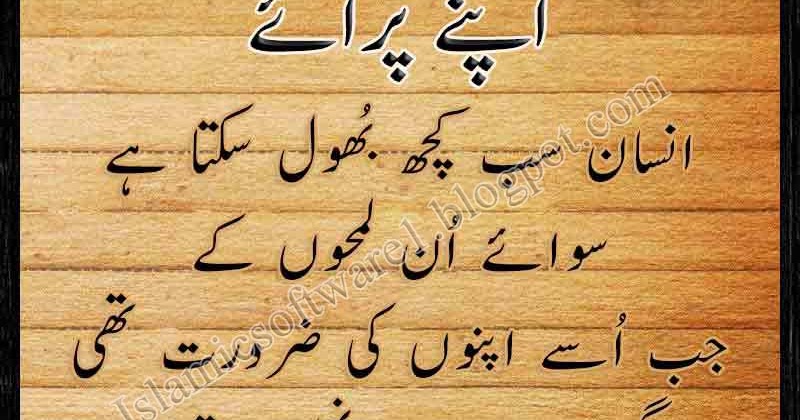 اپنے پرائے
انسان سب کچھ بُھول سکتا ہے
سوائے اُن لمحوں کے
جب اُسے اپنوں کی ضرورت تھی
Islamicsoftware1.blogpet.com